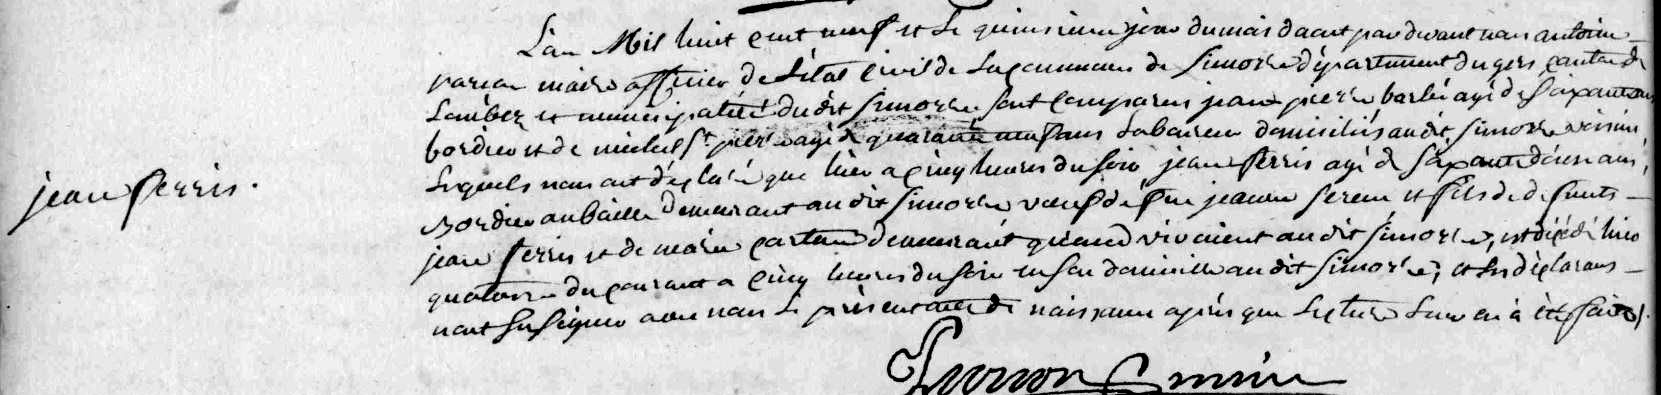 L'an Mil huit cent neuf et le quinsieme jour du mois daout par devant nous antoine
maire officier de L'état Civil de La commune de Simorre département du gers canton de
Lombez et municipalité du dit Simorre sont comparus jean pierre barbé agé de soixante ans
bordier et de michel St pierre agé de quarante neuf ans Laboureur domiciliés au dit Simorre voisins
Lesquels nous ont déclaré que hier a cinq heures du soir jean ferris agé de soixante ans
Bordier demeurant au dit Simorre veuf de feue jeanne et fils de defunts
jean ferris et de marie demeurant quand vivoient au dit Simorre, est décédé hier
jean ferris.
quatorze du courant a cinq heures du soir en son domicille au dit Simorre, et les déclarans
n'ont su signer avec nous Le présent acte de naissance après que Lecture Leur en à été faite.